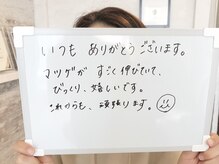 いつも ありがとうございます。
マツゲが すごく伸びていて、
びっくり、嬉しいです。
これからも、頑張ります。